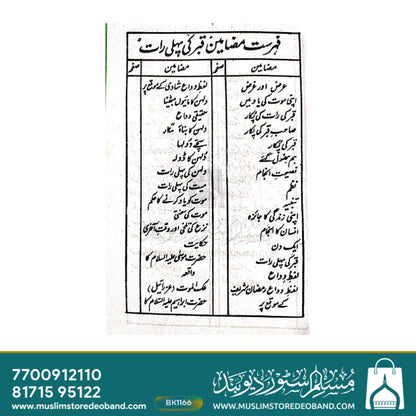 فہرست مضامین قبر کی پہلی رات
مضامین صفحہ مضامین صفحہ
عرض اور غرض
اپنی موت کی یاد میں
قبر کی رات کی پکار
صاحب قبر کی پکار
قبر کی پکار
ہم بھول گئے
نصیحت انجام
نظم
تنبیہ
اپنی زندگی کا جائزہ
انسان کا انجام
ایک دن
قبر کی پہلی رات
لفظ وداع
لفظ وداع رمضان شریف
کے موقع پر
لفظ وداع شادی کے موقع پر
دلہن کا مائیوں بیٹھنا
حقیقی وداع
دلہن کا بناؤ سنگار
سچے دولہا
دلہن کا ڈولہ
دلہن کی پہلی رات
میت کی پہلی رات
موت کو یاد کرنے کا حکم
موت کی سختی
نزع کی تلخی اور وقت آخری
حکایت
حضرت موسیٰ علیہ السلام کا
واقعہ
ملک الموت (عزرائیل)
حضرت ابراہیم علیہ السلام کا
مسلم اسٹور دیوبند
7700912110
81715 95122
BK1166
WWW.MUSLIMSTOREDEOBAND.COM
www.muslimstoredeoband.com